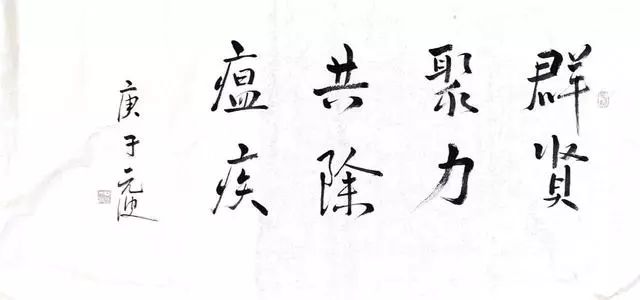 群贤
聚力
共除
瘟疾
庚子元